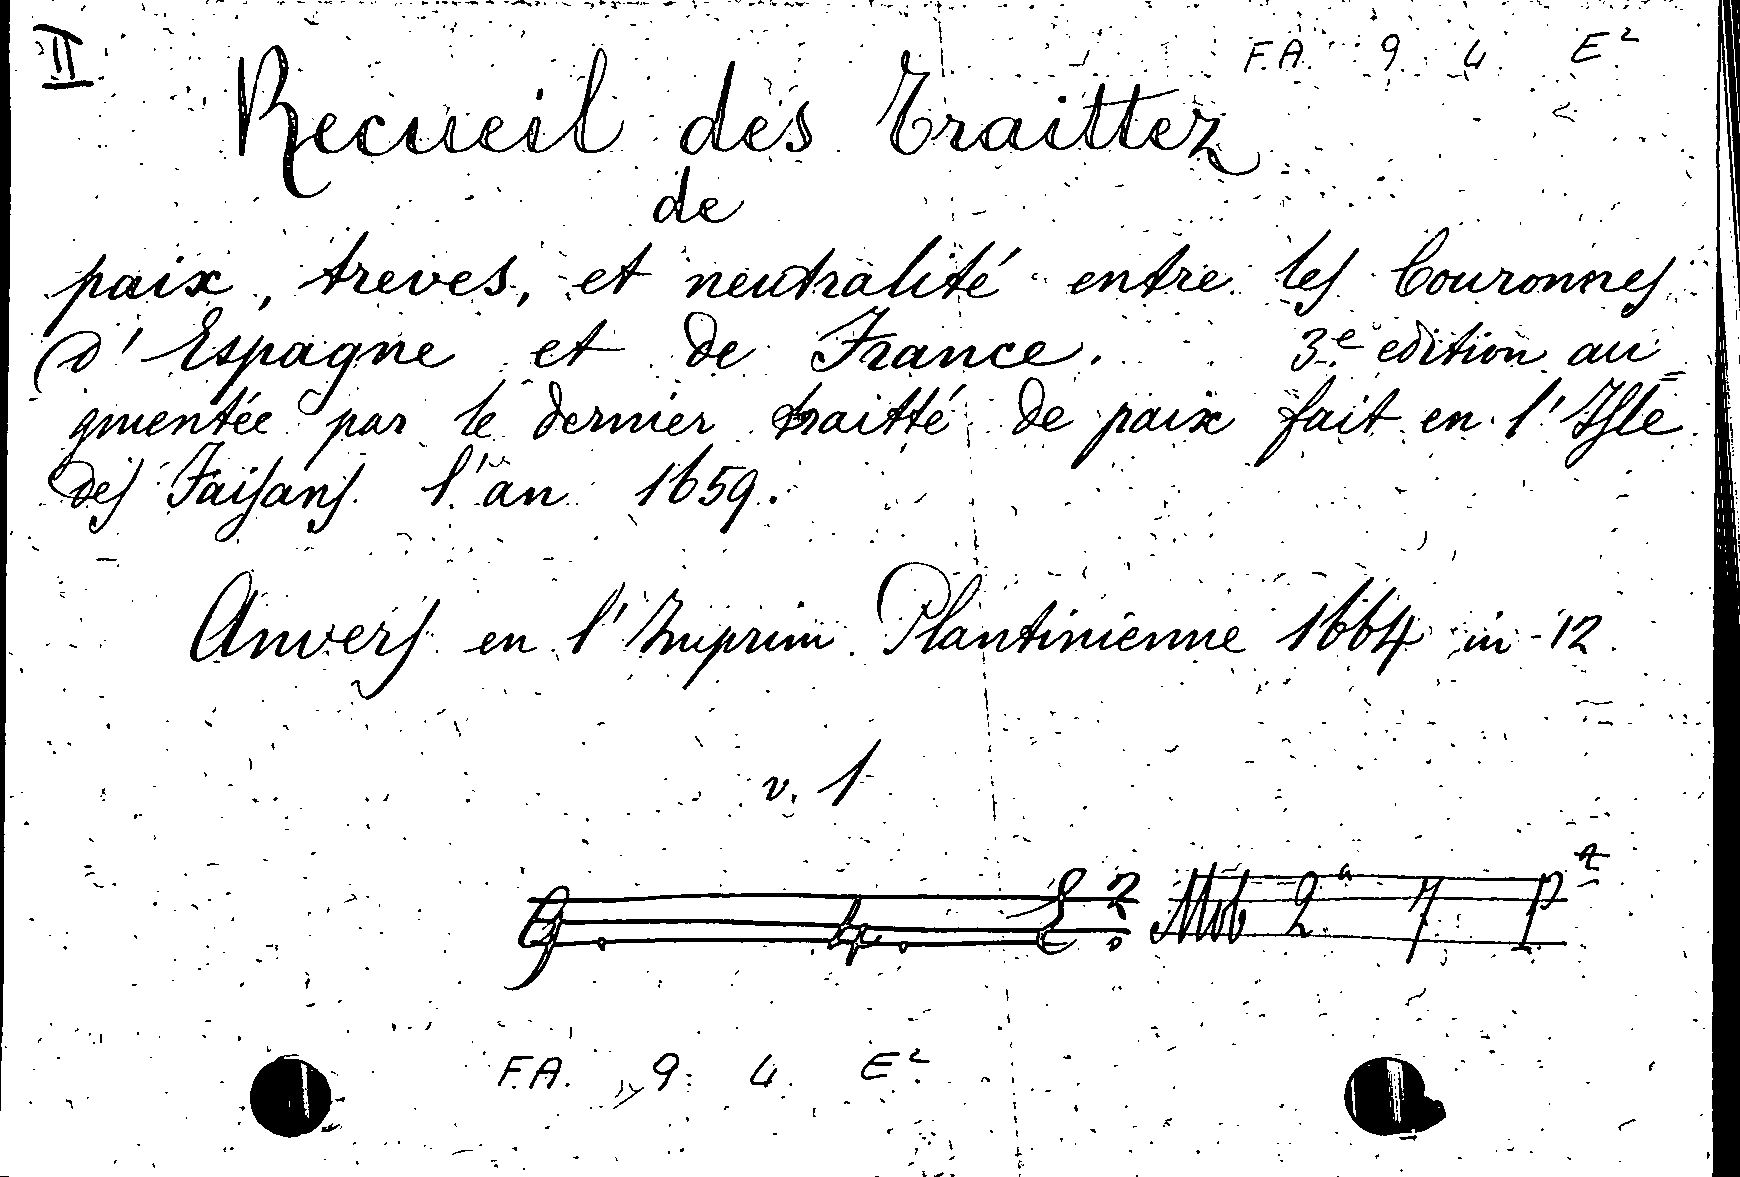 II
F.A. 9 4 E²
Recueil des Traittez
de
paix, treves, et neutralité entre les Couronnes
d'Espagne et de France. 3e edition au=
gmentée par le dernier traitté de paix fait en l'Isle
des Faisans l'an 1659.
Anvers en l'Imprim. Plantinienne 1664 in-12
v. 1
G. 4. E 2. Mob 2a 7 P
F.A. 9 4 E²